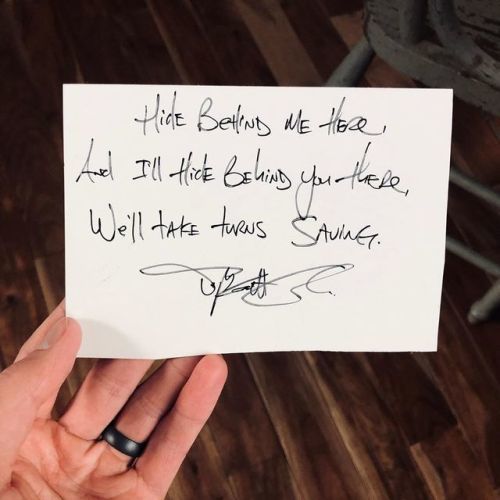 Hide Behind Me Here,
And I'll Hide Behind You there,
We'll take turns Saving.